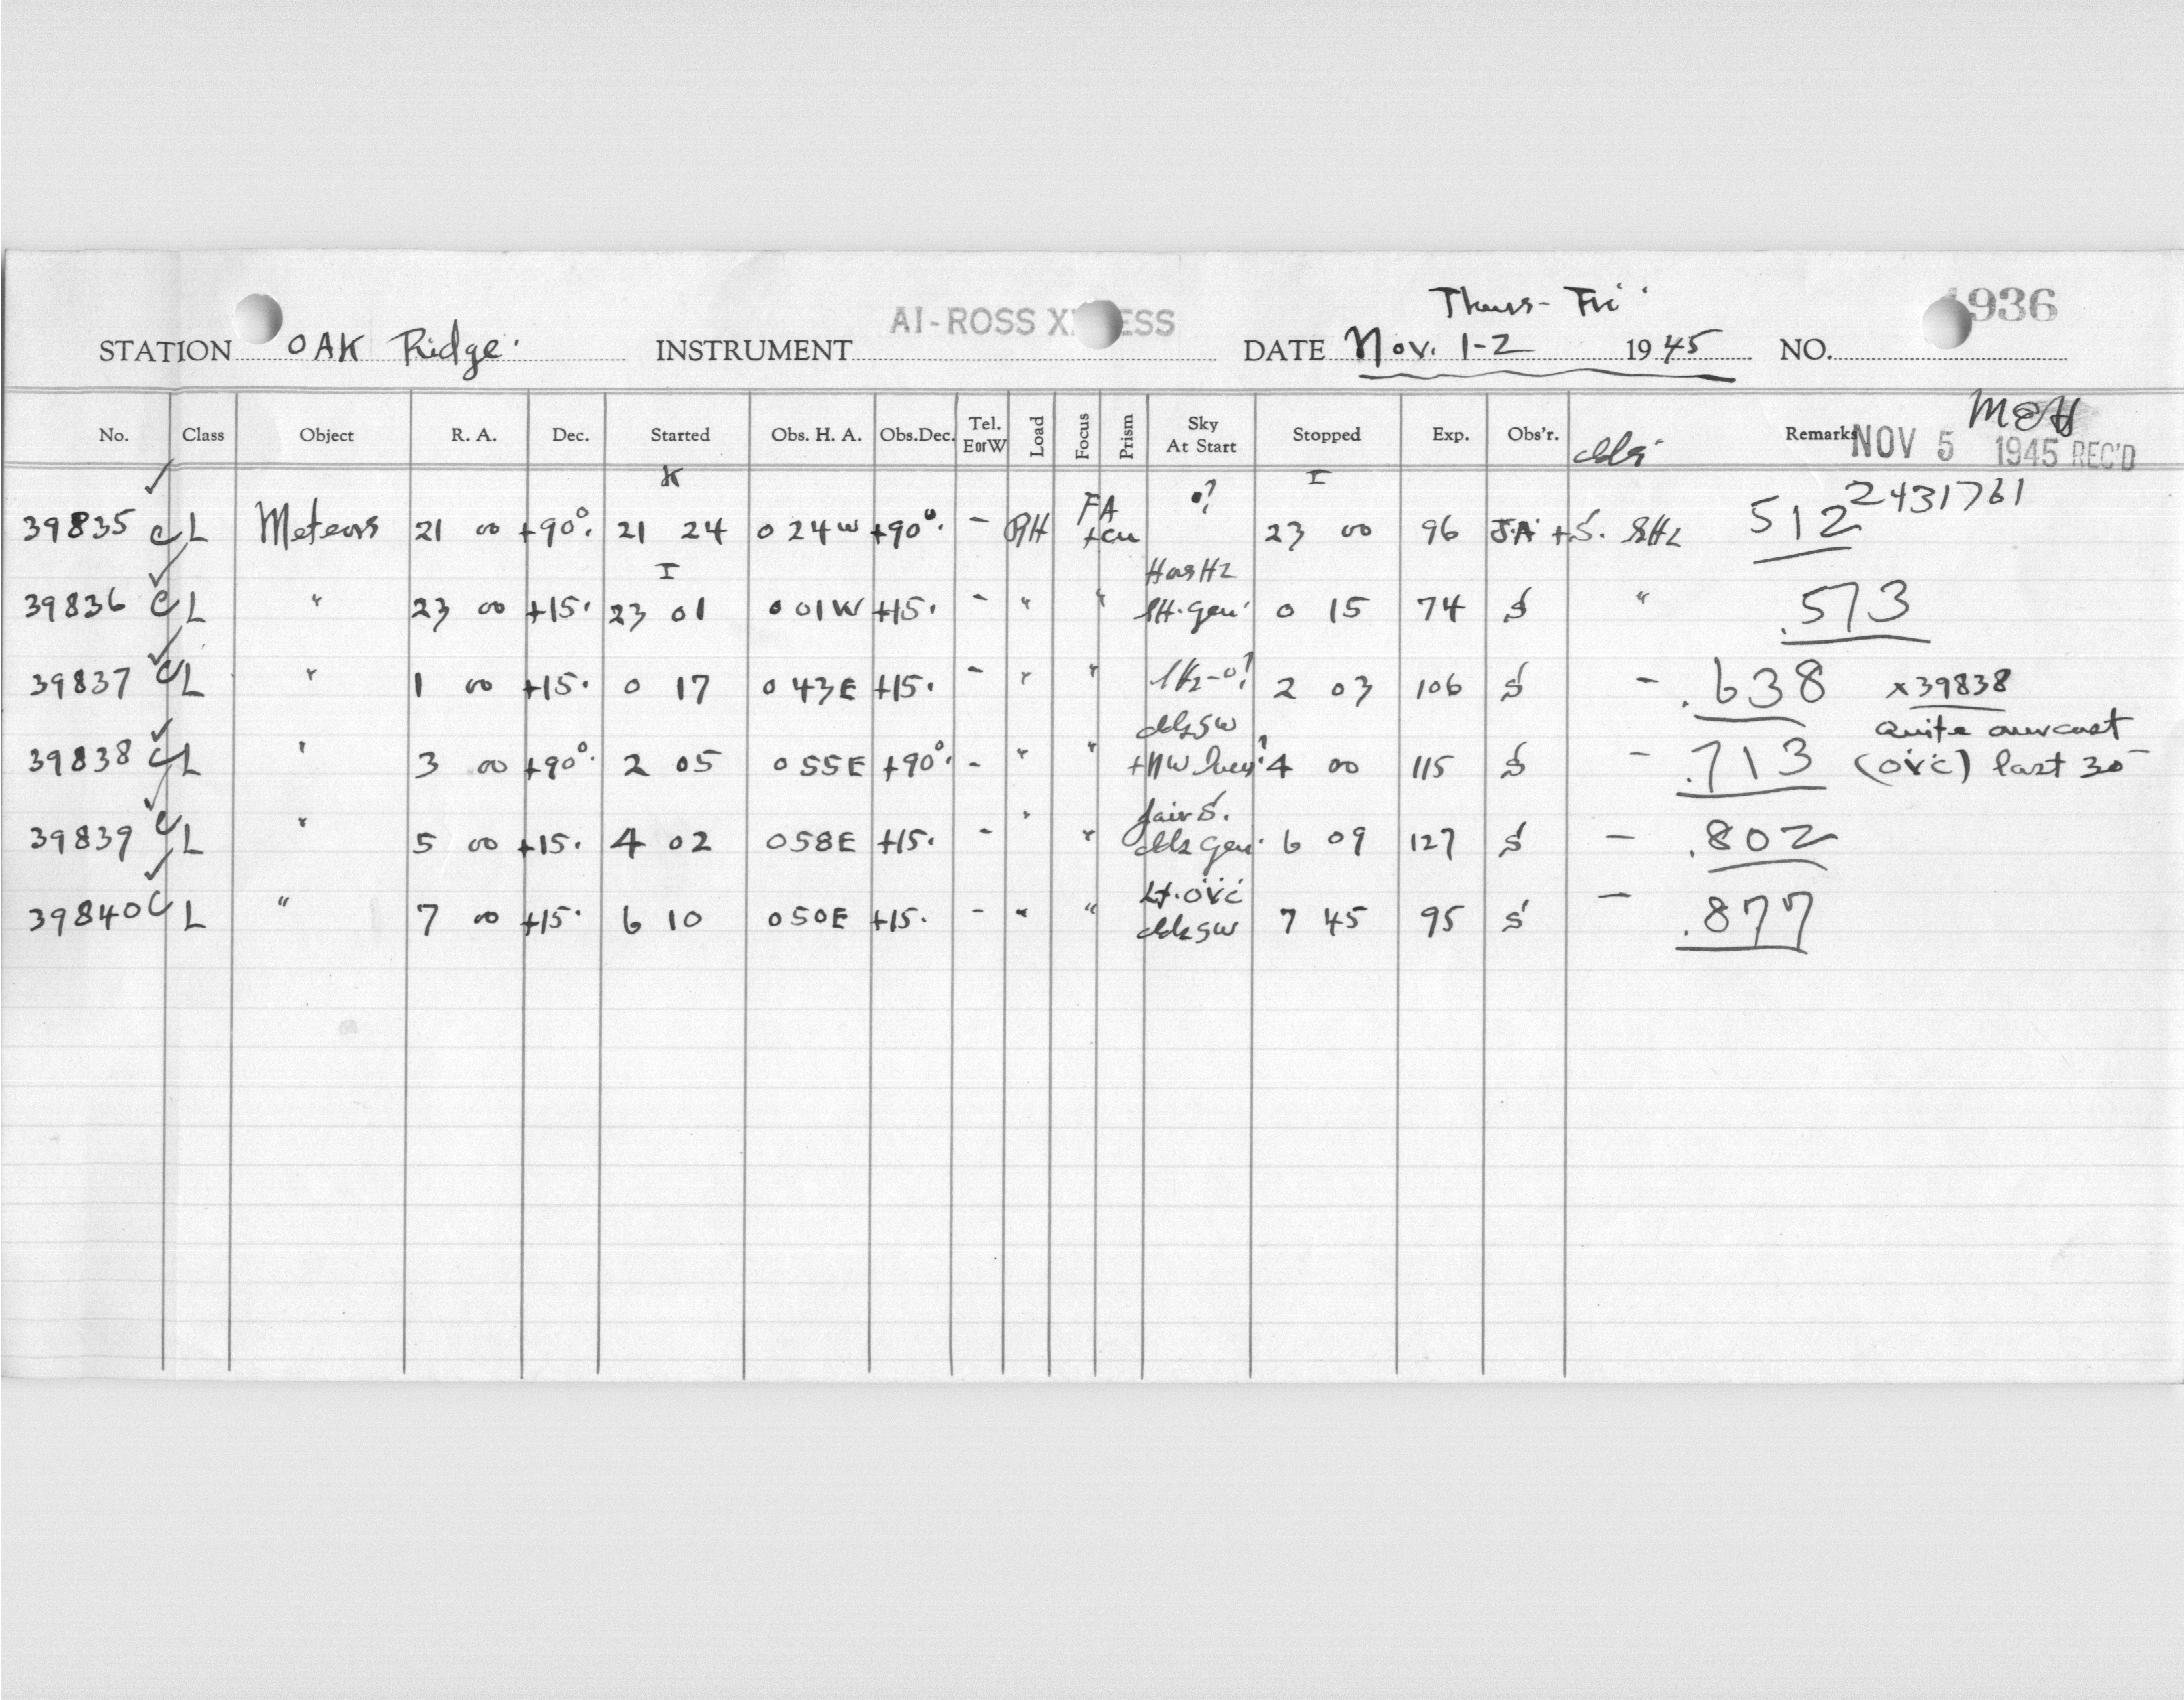 Thurs-Fri
AI-ROSS X ESS
936
STATION OAK Ridge INSTRUMENT DATE Nov. 1-2 1945 NO.
No. Class Object R. A. Dec. Started Obs. H. A. Obs.Dec. Tel. E or W Load Focus Prism Sky At Start Stopped Exp. Obs'r. Remarks
NOV 5 1945 REC'D
K I
39835 C L Meteors 21 00 +90°. 21 24 0 24W +90°. - FA +cu o? 23 00 96 JA +S. 512 2431761
I
39836 C L " 23 00 +15. 23 01 0 01W +15. - " " Has Hz 0 15 74 S " .573
39837 C L " 1 00 +15. 0 17 0 43E +15. - " " 2 03 106 S - .638 x39838
39838 C L " 3 00 +90°. 2 05 0 55E +90°. - " " 4 00 115 S - .713 Quite overcast
(ovc) last 30
39839 C L " 5 00 +15. 4 02 0 58E +15. - " " fair S. 6 09 127 S - .802
39840 C L " 7 00 +15. 6 10 0 50E +15. - " " Lt. ovc 7 45 95 S - .877